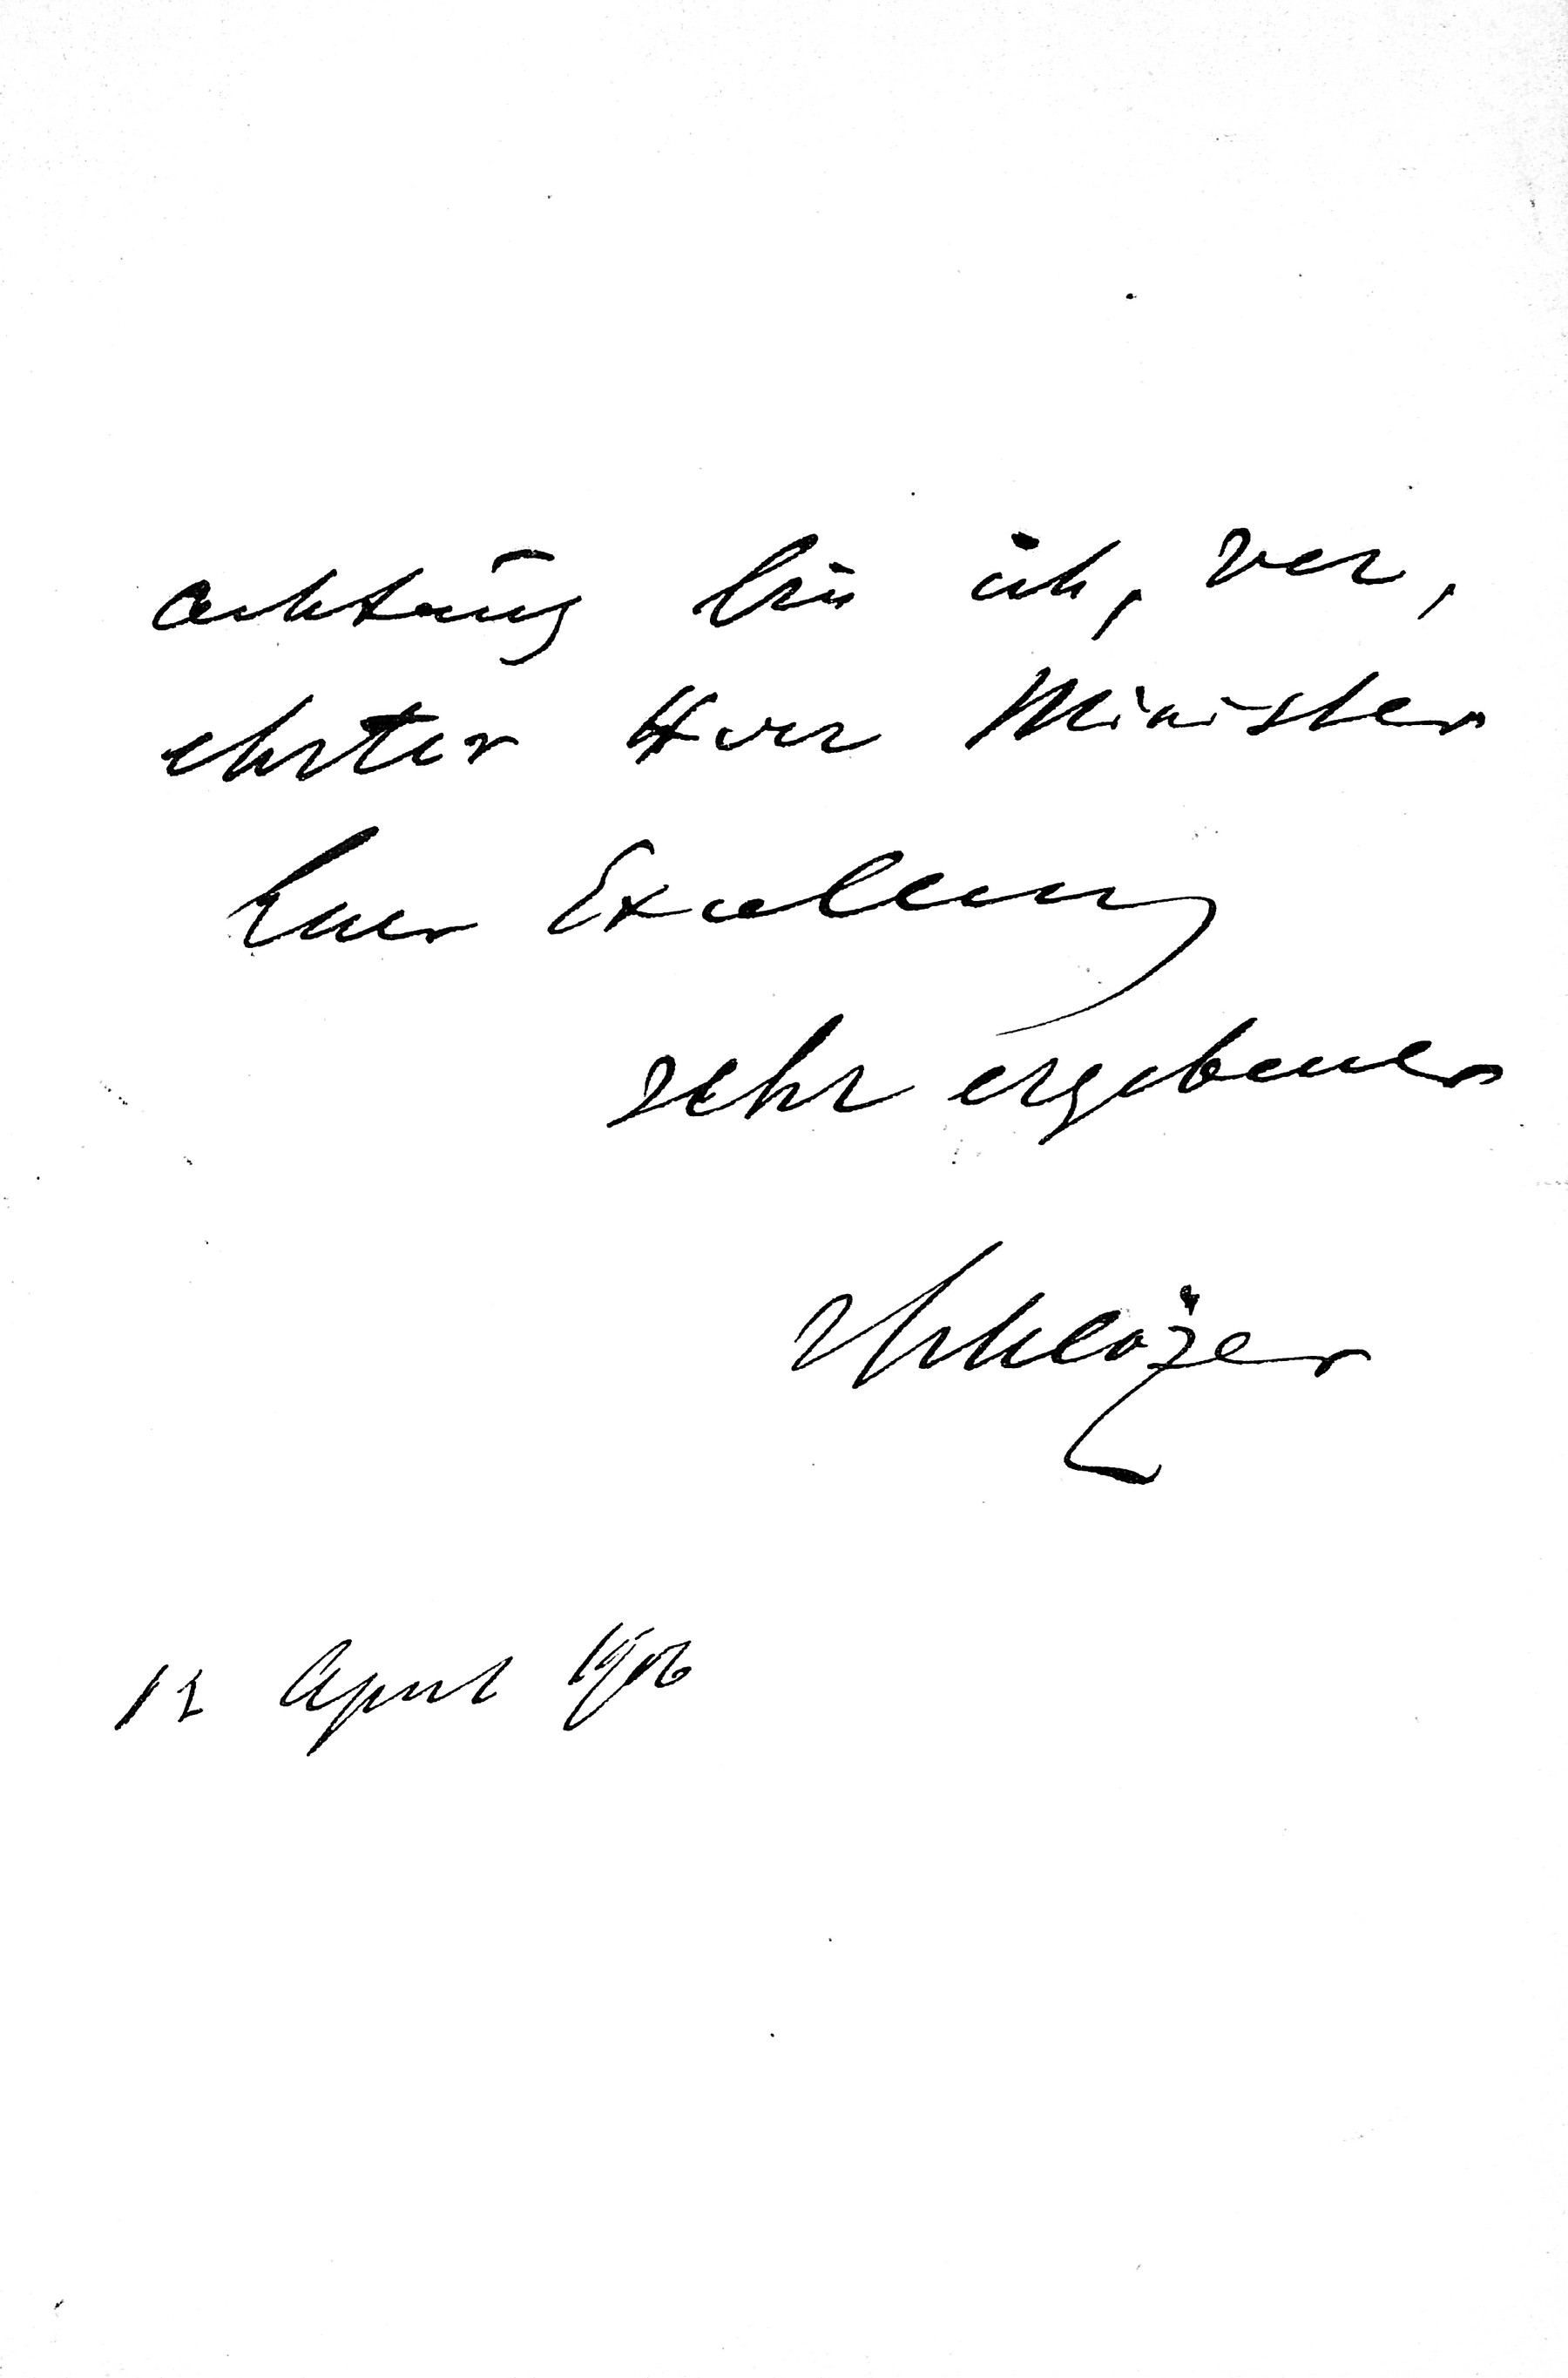 achtung bin ich, ver,
ehrter Herr Minister
Euer Excellenz
sehr ergebener
Schlözer
12 April 1906